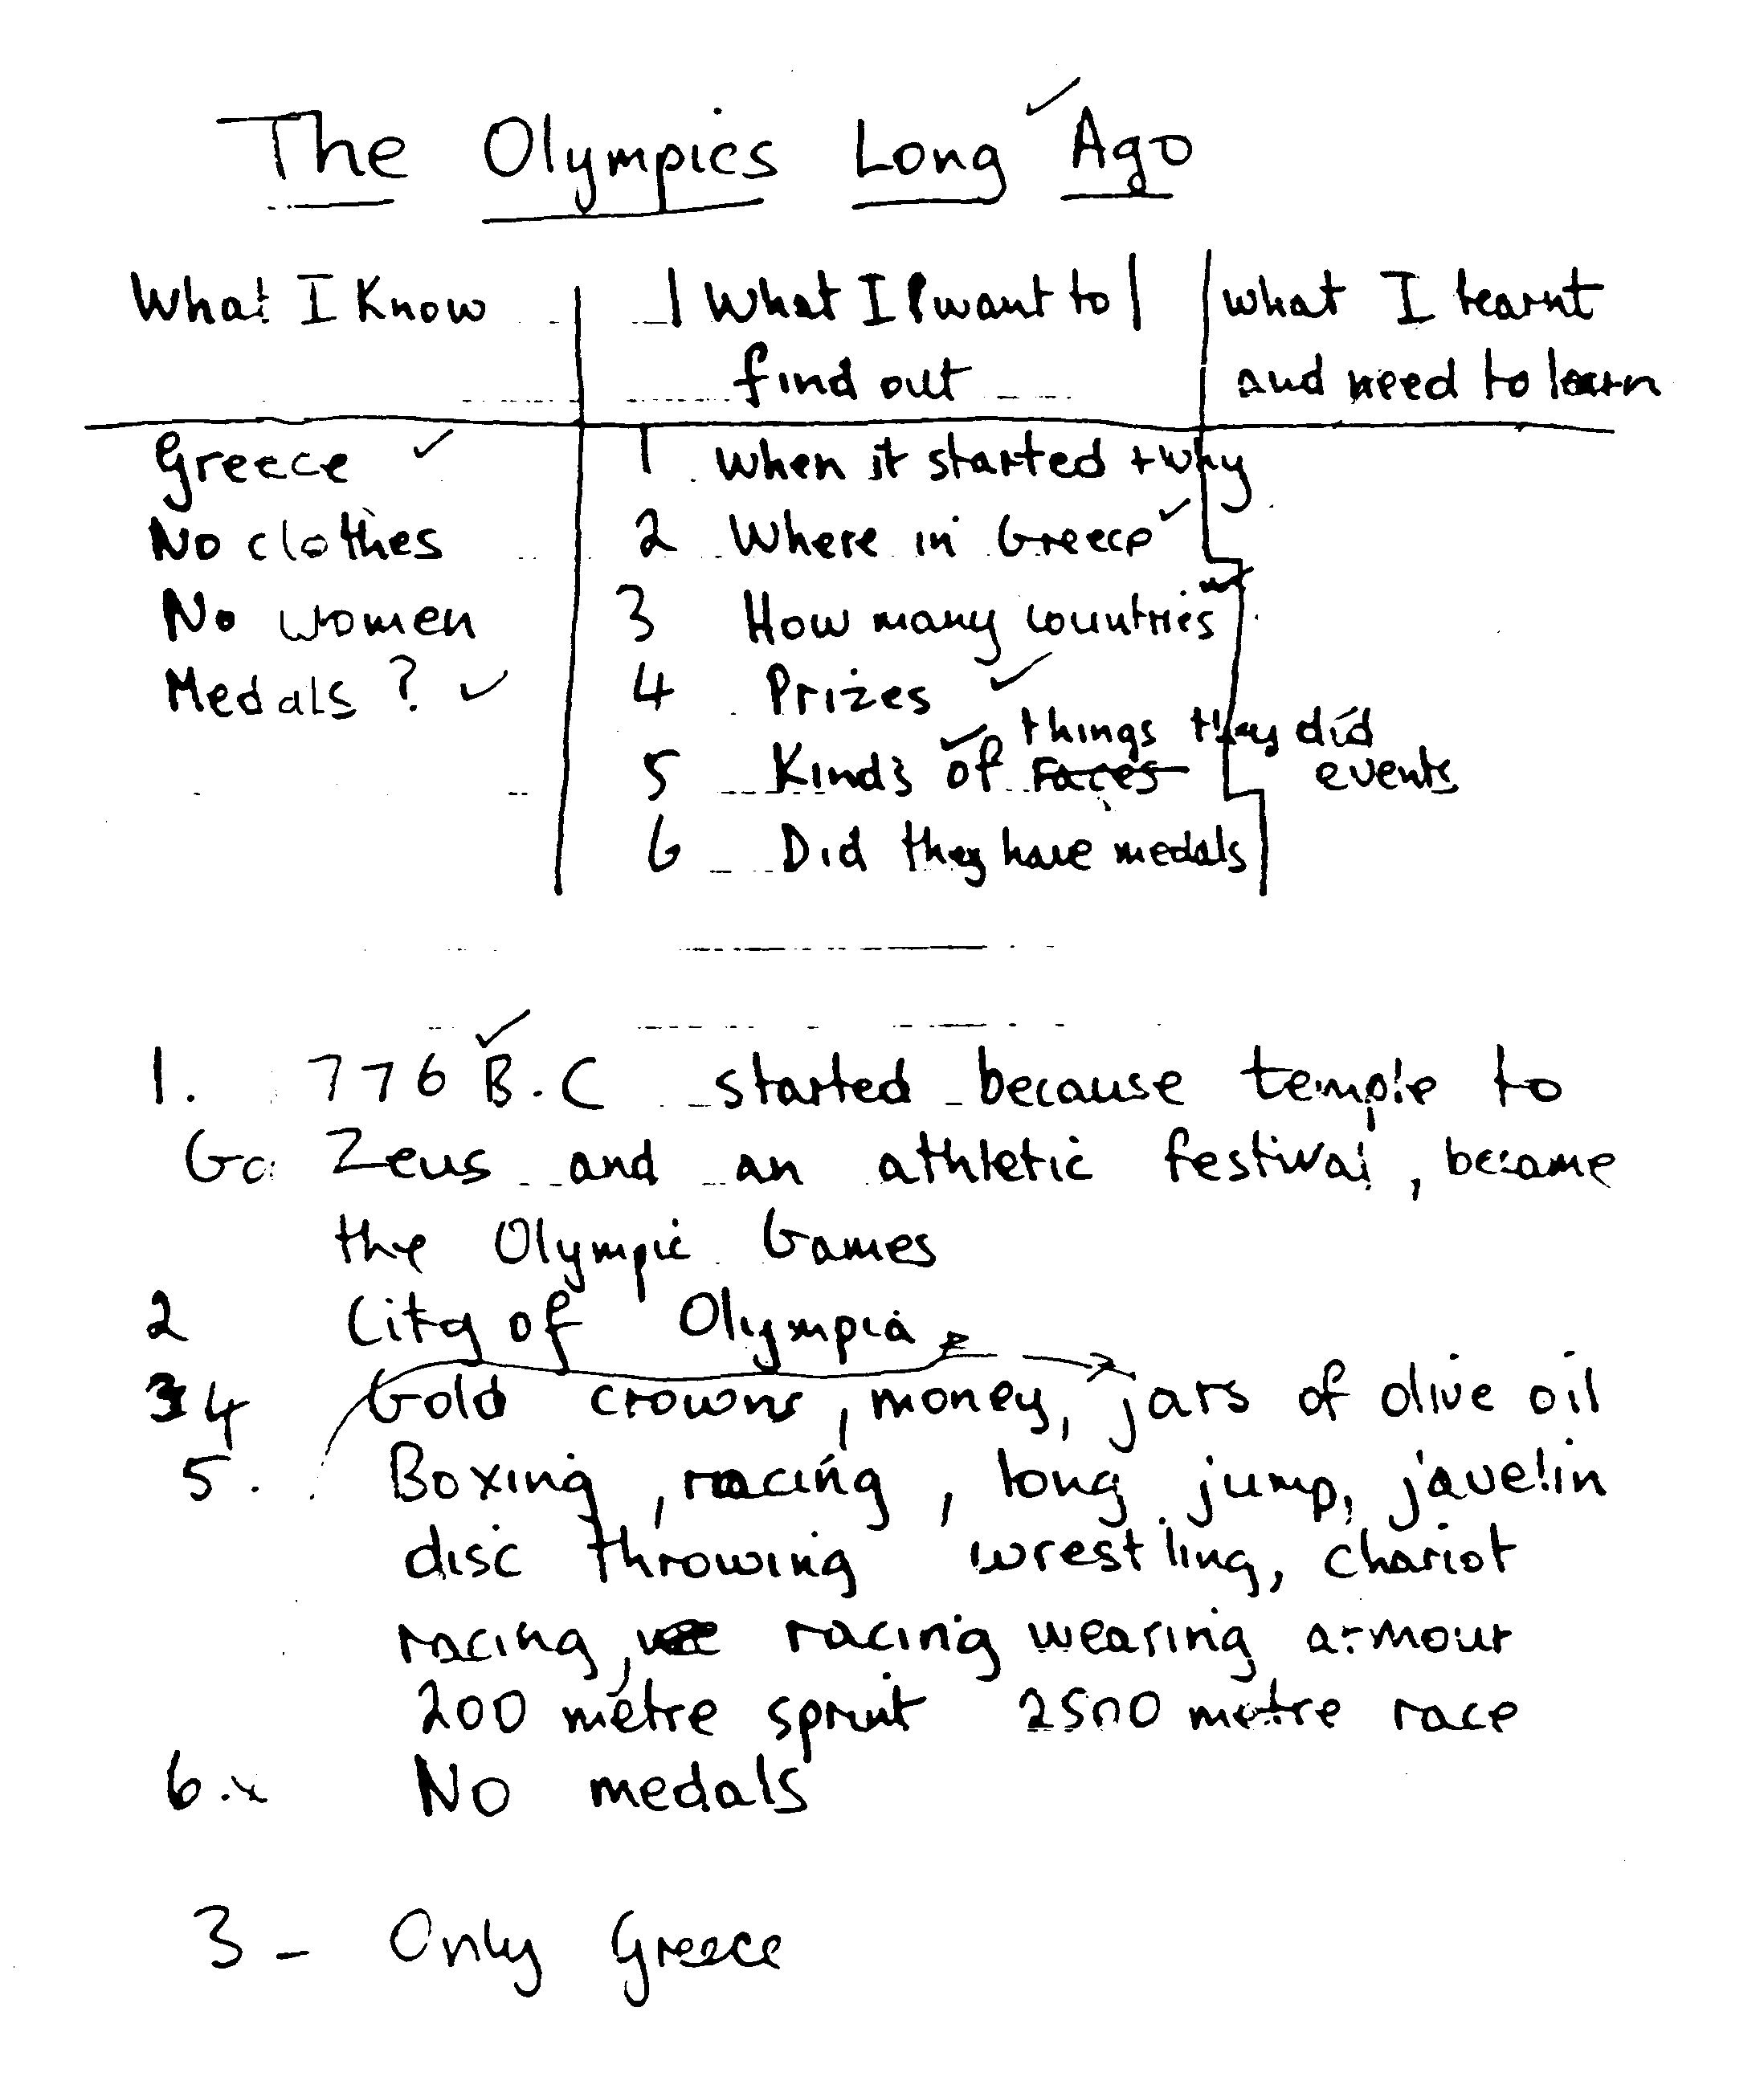 The Olympics Long Ago
What I Know | What I want to | what I learnt
find out and need to learn
Greece ✓ 1 when it started + why
No clothes 2 Where in Greece ✓
No women 3 How many countries
Medals ? ✓ 4 Prizes ✓
things they did
5 Kinds of races events
6 Did they have medals
1. 776 B.C started because temple to
Zeus and an athletic festival, became
the Olympic Games
2 City of Olympia
4 Gold crowns, money, jars of olive oil
5. Boxing, racing, long jump, javelin
disc throwing wrestling, chariot
racing, racing wearing armour
200 metre sprint 2500 metre race
6. x No medals
3 - Only Greece